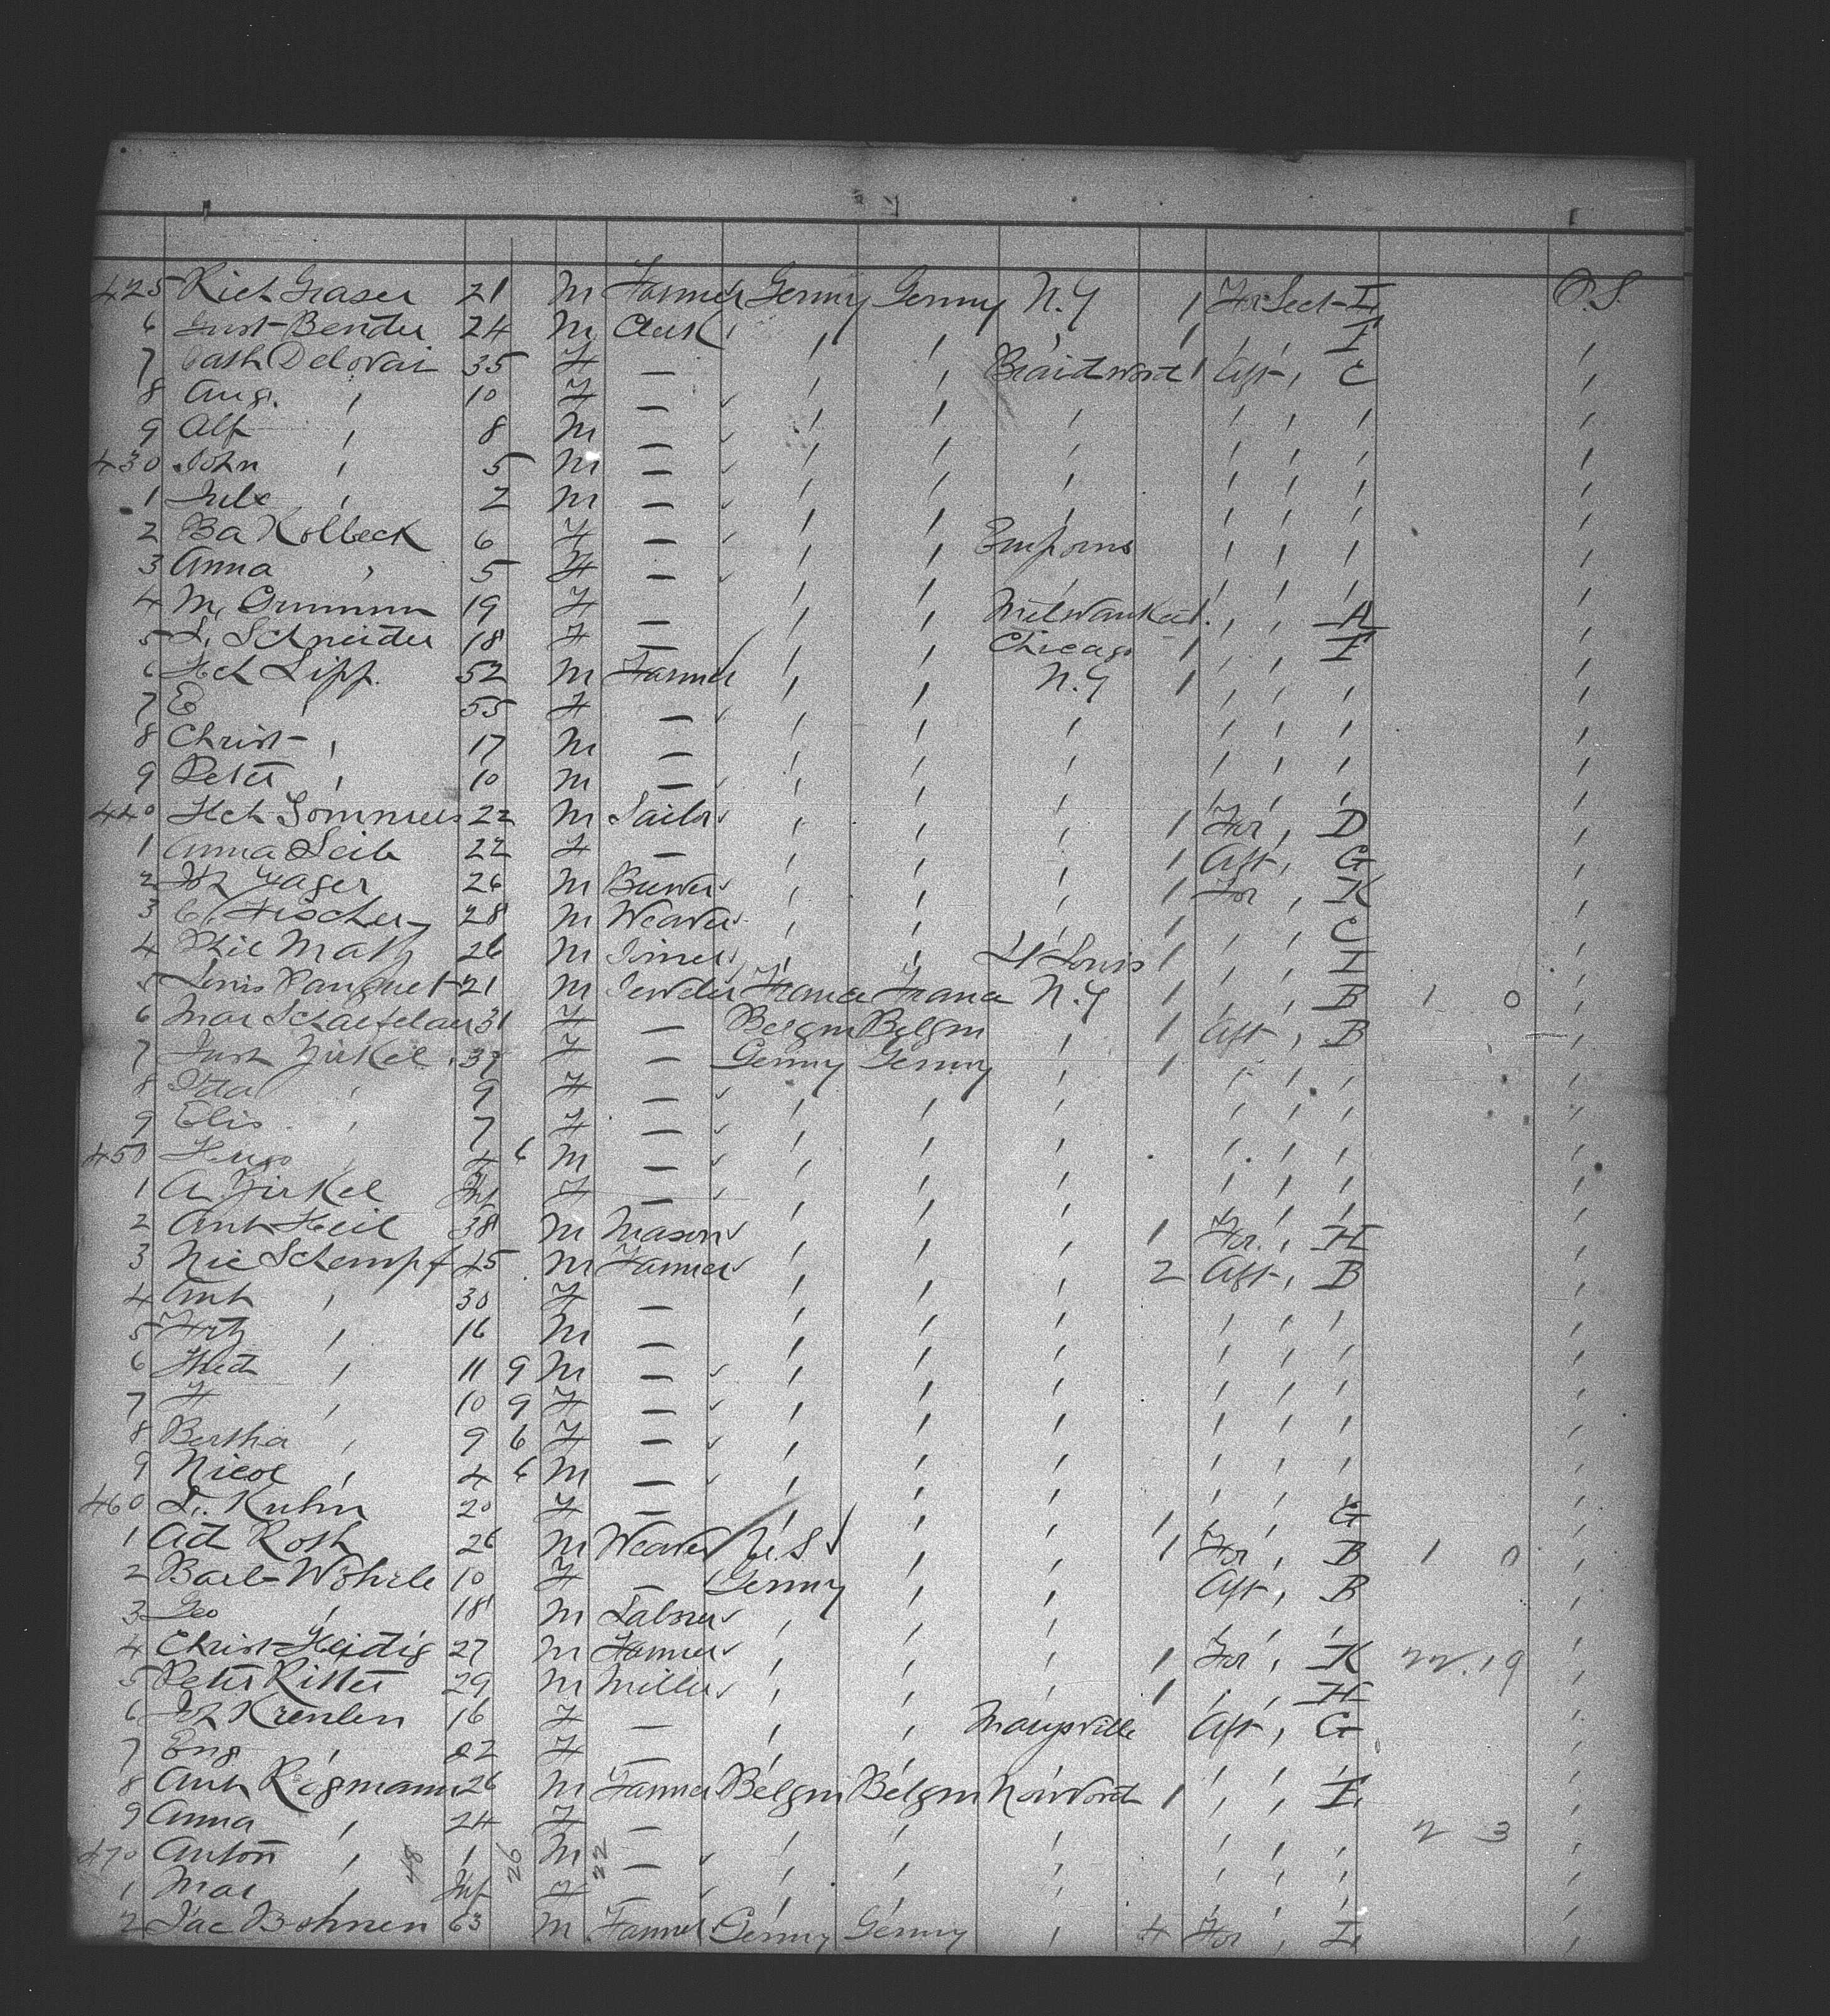 425 Rich Graser 21 M Farmer Germy Germy N.Y 1 For Sect- L P.S.
6 Gust Bender 24 M Clerk ' ' ' ' 1 ' ' I '
7 Cath Delovai 35 F — ' ' Braidwood 1 Aft ' C '
8 Aug. ' 10 F — ' ' ' ' ' ' '
9 Alf ' 8 M — ' ' ' ' ' ' '
430 John ' 5 M — ' ' ' ' ' ' '
1 Jule ' 2 M — ' ' ' ' ' ' '
2 Ba Kolbeck 6 F — ' ' ' ' ' '
3 Anna ' 5 F — ' ' ' ' ' ' '
4 M, 19 F — ' ' Milwaukee 1. ' ' A '
5 L, Schneider 18 F — ' ' Chicago 1 ' ' I '
6 Hch Lipp. 52 M Farmer ' ' N.Y 1 ' ' ' '
7 E ' 55 F — ' ' ' ' ' ' '
8 Christ ' 17 M — ' ' ' ' ' ' '
9 Peter ' 10 M — ' ' ' ' ' ' '
440 Hch Sommers 22 M Sailor ' ' ' 1 For ' D '
1 Anna Seib 22 F — ' ' ' 1 Aft ' G '
2 Jager 26 M Brewer ' ' ' 1 For ' K '
3 C. Fischer 28 M Weaver ' ' ' 1 ' ' C '
4 Phil Math 26 M Joiner ' ' St Louis 1 ' ' I '
5 Louis Panquet 21 M Jeweler France France N.Y 1 ' ' B 1 0 '
6 Mar 31 F — Belgm Belgm ' 1 Aft ' B '
7 Just Zirkel 37 F — Germy Germy ' 1 ' ' ' '
8 Ida ' 9 F — ' ' ' ' ' ' '
9 Elis ' 7 F — ' ' ' ' ' ' '
450 Hugo ' 4 6 M — ' ' ' ' ' ' '
1 A. Zirkel Inf F — ' ' ' ' ' ' '
2 Ant Heil 38 M Mason ' ' ' 1 For. ' H '
3 Nic Schempf 45 M Farmer ' ' ' 2 Aft ' B '
4 Ant ' 30 F — ' ' ' ' ' ' '
5 Fritz ' 16 M — ' ' ' ' ' ' '
6 Fried ' 11 9 M — ' ' ' ' ' ' '
7 F ' 10 9 F — ' ' ' ' ' ' '
8 Bertha ' 9 6 F — ' ' ' ' ' ' '
9 Nicol ' 4 6 M — ' ' ' ' ' ' '
460 L. Kuhn 20 F — ' ' ' 1 ' ' G '
1 Ad Roth 26 M Weaver U.S ' ' 1 For ' B 1 0 '
2 Barb Wöhrle 10 F — Germy ' ' Aft ' B '
3 Geo ' 18 M Labrer ' ' ' ' ' ' '
4 Christ Heidig 27 M Farmer ' ' ' 1 For ' K 22.19 '
5 Peter Ritter 29 M Miller ' ' ' 1 ' ' H '
6 Krenlen 16 F — ' ' Marysville Aft ' G '
7 Eng ' 22 F — ' ' ' ' ' ' '
8 Ant Rogmann 26 M Farmer Belgm Belgm Norwood 1 ' ' I. '
9 Anna ' 24 F — ' ' ' ' ' ' 2 3 '
470 Anton ' 48 1 26 M 22 — ' ' ' ' ' ' '
1 Mar ' Inf F — ' ' ' ' ' ' '
2 Jac Bohnen 63 M Farmer Germy Germy ' 4 For ' L '